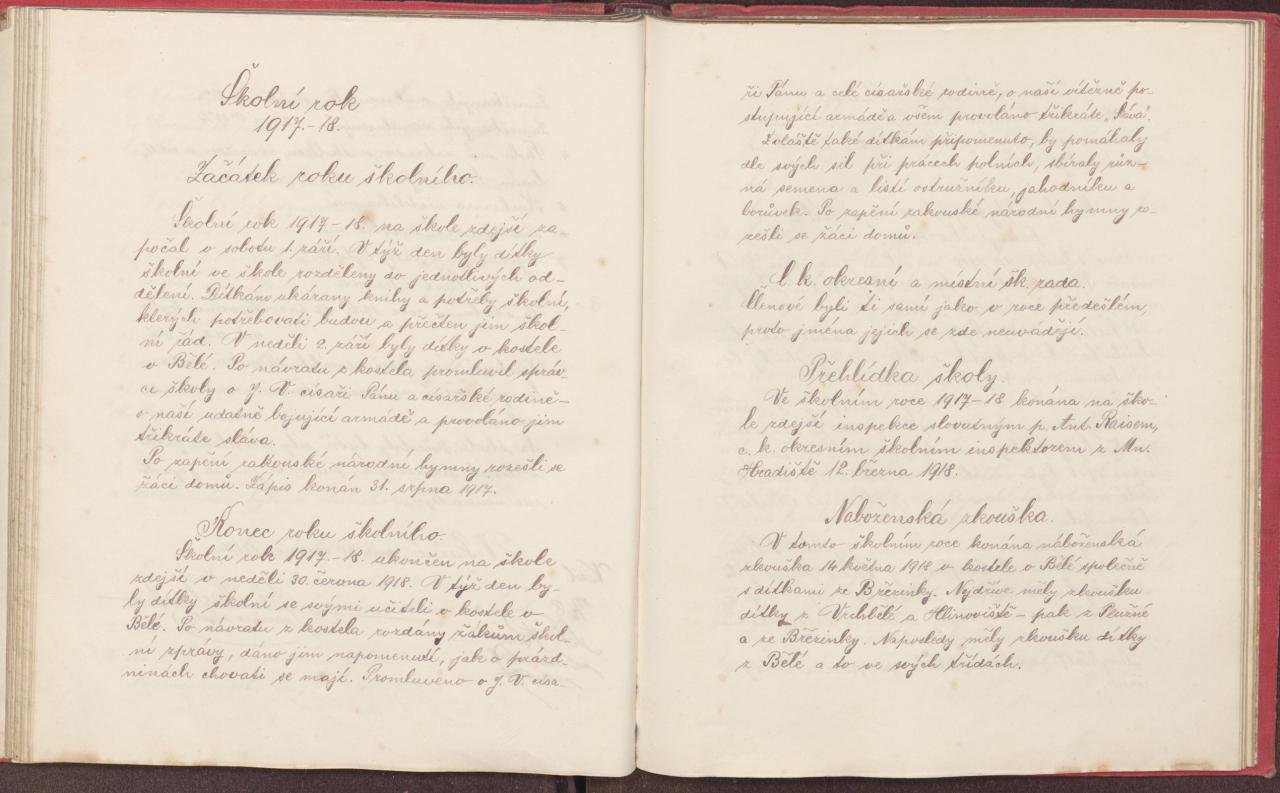 Školní rok
1917.-18.
Začátek roku školního.
Školní rok 1917-18. na škole zdejší za-
počal v sobotu 1. září. V týž den byly dítky
školní ve škole rozděleny do jednotlivých od-
dělení. Dítkám ukázany knihy a potřeby školní,
kterých potřebovati budou a přečten jim škol-
ní řád. V neděli 2. září byly dítky v kostele
v Bělé. Po návratu z kostela promluvil správ-
ce školy o J. V. císaři Pánu a císařské rodině-
o naší udatně bojující armádě a provoláno jim
třikráte sláva.
Po zapění rakouské národní hymny rozešli se
žáci domů. Zápis konán 31. srpna 1917.
Konec roku školního.
Školní rok 1917.-18. ukončen na škole
zdejší v neděli 30. června 1918. V týž den by-
ly dítky školní se svými učiteli v kostele v
Bělé. Po návratu z kostela rozdány žákům škol-
ní zprávy, dáno jim napomenutí, jak o prázd-
ninách chovati se mají. Promluveno o J. V. císa-
ři Pánu a celé císařské rodině, o naší vítězně po-
stupující armádě a všem provoláno třikráte „Sláva".
Zvláště také dítkám připomenuto, by pomáhaly
dle svých sil při pracech polních, sbíraly růz-
ná semena a listí ostružníku, jahodníku a
borůvek. Po zapění rakouské národní hymny ro-
zešli se žáci domů.
C. k. okresní a místní šk. rada.
Členové byli ti samí jako v roce předešlém,
proto jména jejich se zde neuvádějí.
Přehlídka školy.
Ve školním roce 1917-18 konána na ško-
le zdejší inspekce slovutným p. Ant. Raisem,
c. k. okresním školním inspektorem z Mn.
Hradiště 12. března 1918.
Naboženská zkouška.
V tomto školním roce konána náboženská
zkouška 14. května 1918 v kostele v Bělé společně
s dítkami ze Březinky. Nejdříve měly zkoušku
dítky z Vrchbělé a Hlinoviště - pak z Plužné
a ze Březinky. Naposledy měly zkoušku dítky
z Bělé a to ve svých třídách.